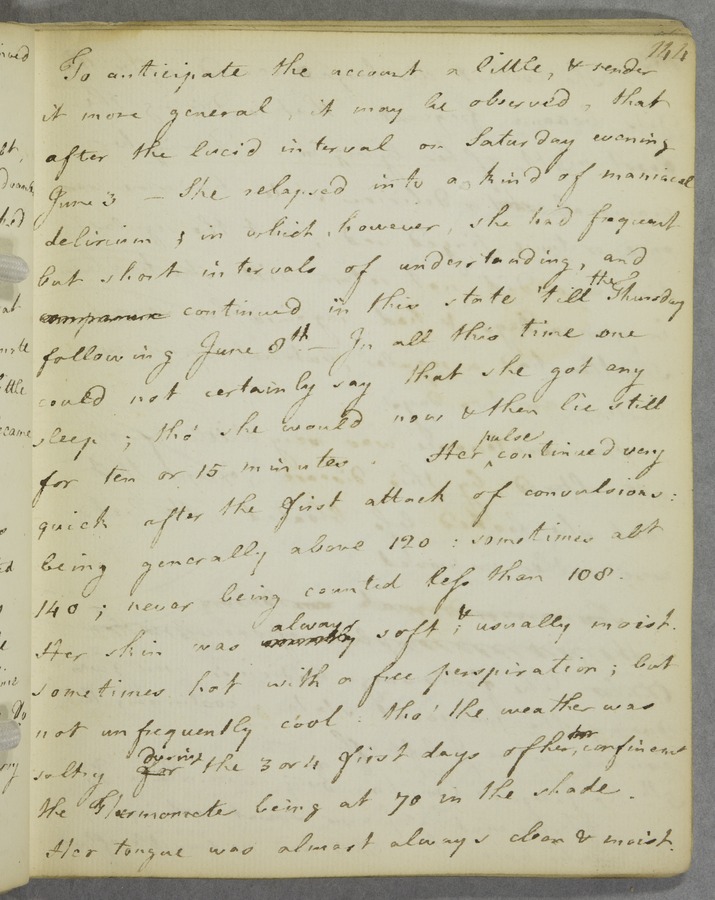 144
To anticipate the account a little, & render
it more general, it may be observed, that
after the lucid interval on Saturday evening
June 3 — She relapsed into a kind of maniacal
delirium; in which, however, she had frequent
but short intervals of understanding, and
continued in this state 'till the Thursday
following June 8th — In all this time one
could not certainly say that she got any
sleep; tho' she would now & then lie still
for ten or 15 minutes. Her pulse continued very
quick after the first attack of convulsions:
being generally above 120: sometimes abt
140; never being counted less than 108.
Her skin was always soft, & usually moist.
sometimes hot with a free perspiration; but
not unfrequently cool: tho' the weather was
sultry for during the 3 or 4 first days of her confinemt
the Thermomete being at 70 in the shade.
Her tongue was almost always clean & moist.